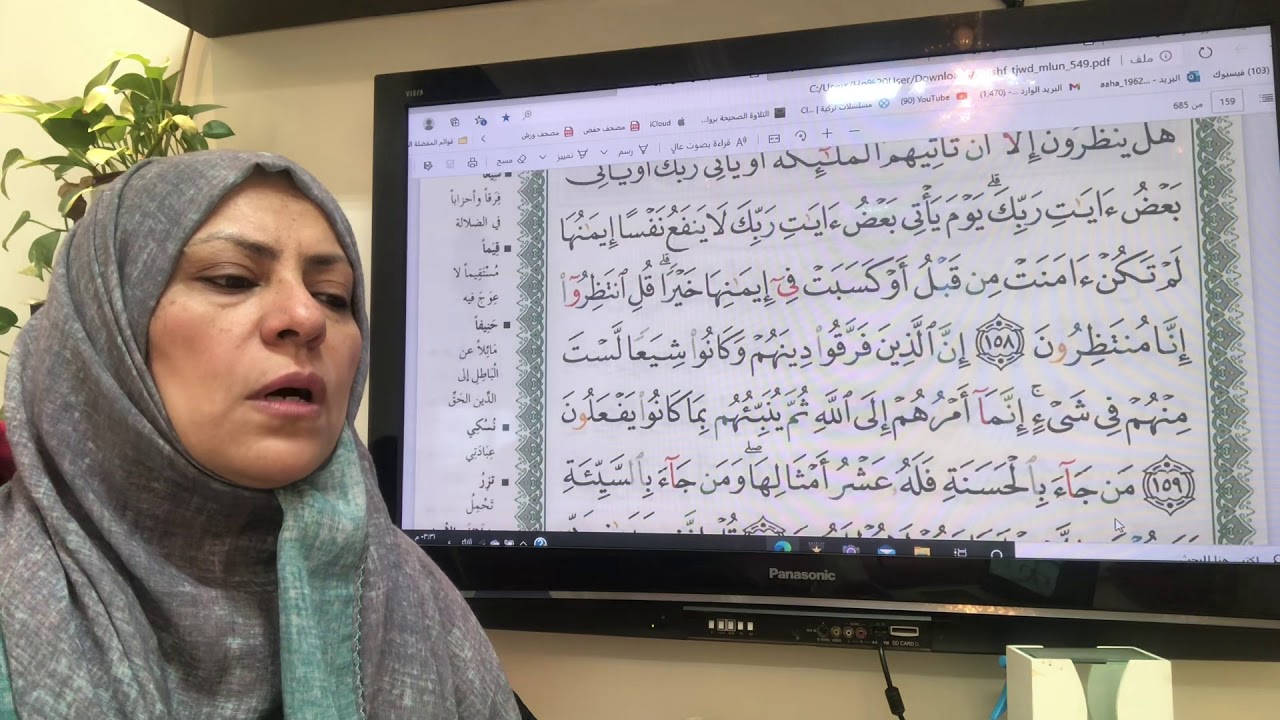 VIERA
C:/Users/Hp%20User/Downloads/
shf_tjwd_mlun_549.pdf
ملف
(103) فيسبوك
البريد - aaha_1962...
البريد الوارد - (1,470)...
(90) YouTube
مسلسلات تركية
التلاوة الصحيحة بروا...
iCloud
مصحف حفص
مصحف ورش
قوائم المفضلة
159
من 685
قراءة بصوت عالٍ
رسم
تمييز
مسح
هَلْ يَنظُرُونَ إِلَّا أَن تَأْتِيَهُمُ ٱلْمَلَٰٓئِكَةُ أَوْ يَأْتِيَ رَبُّكَ أَوْ يَأْتِيَ
بَعْضُ ءَايَٰتِ رَبِّكَ ۗ يَوْمَ يَأْتِى بَعْضُ ءَايَٰتِ رَبِّكَ لَا يَنفَعُ نَفْسًا إِيمَٰنُهَا
لَمْ تَكُنْ ءَامَنَتْ مِن قَبْلُ أَوْ كَسَبَتْ فِىٓ إِيمَٰنِهَا خَيْرًا ۗ قُلِ ٱنتَظِرُوٓا۟
إِنَّا مُنتَظِرُونَ ١٥٨ إِنَّ ٱلَّذِينَ فَرَّقُوا۟ دِينَهُمْ وَكَانُوا۟ شِيَعًا لَّسْتَ
مِنْهُمْ فِى شَىْءٍ ۚ إِنَّمَآ أَمْرُهُمْ إِلَى ٱللَّهِ ثُمَّ يُنَبِّئُهُم بِمَا كَانُوا۟ يَفْعَلُونَ
١٥٩ مَن جَآءَ بِٱلْحَسَنَةِ فَلَهُۥ عَشْرُ أَمْثَالِهَا ۖ وَمَن جَآءَ بِٱلسَّيِّئَةِ
شِيَعاً
فِرَقاً وأحزاباً
في الضلالة
قِيَماً
مُسْتَقِيماً لا
عِوَجَ فيه
حَنِيفاً
مَائِلاً عن
الْبَاطِلِ إلى
الدِّين الحَقِّ
نُسُكِي
عِبَادَتِي
تَزِرُ
تَحْمِلُ
Panasonic
SD CARD